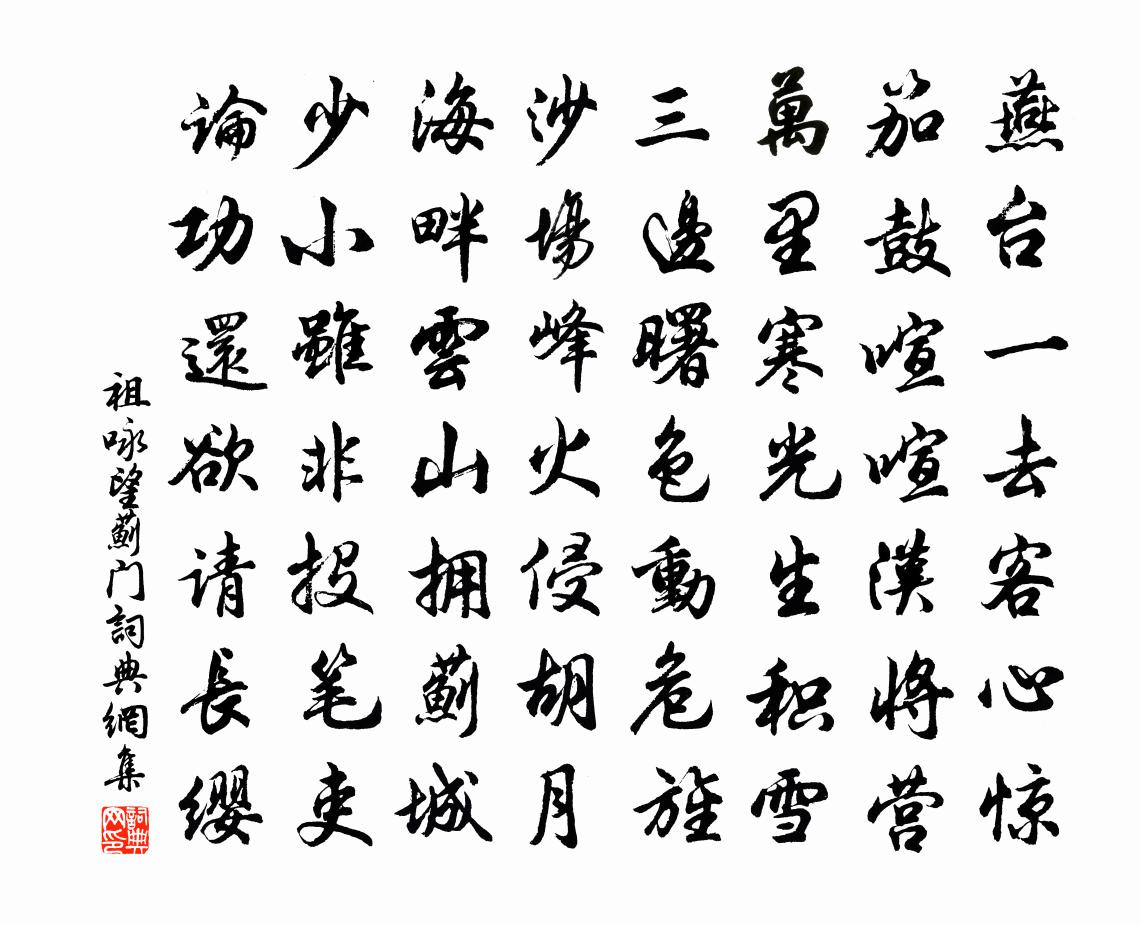 燕台一去客心惊
笳鼓喧喧漢将营
萬里寒光生积雪
三邊曙色動危旌
沙場峰火侵胡月
海畔雲山拥薊城
少小雖非投笔吏
論功還欲请長缨
祖咏望薊门詞典網集
詞典网印